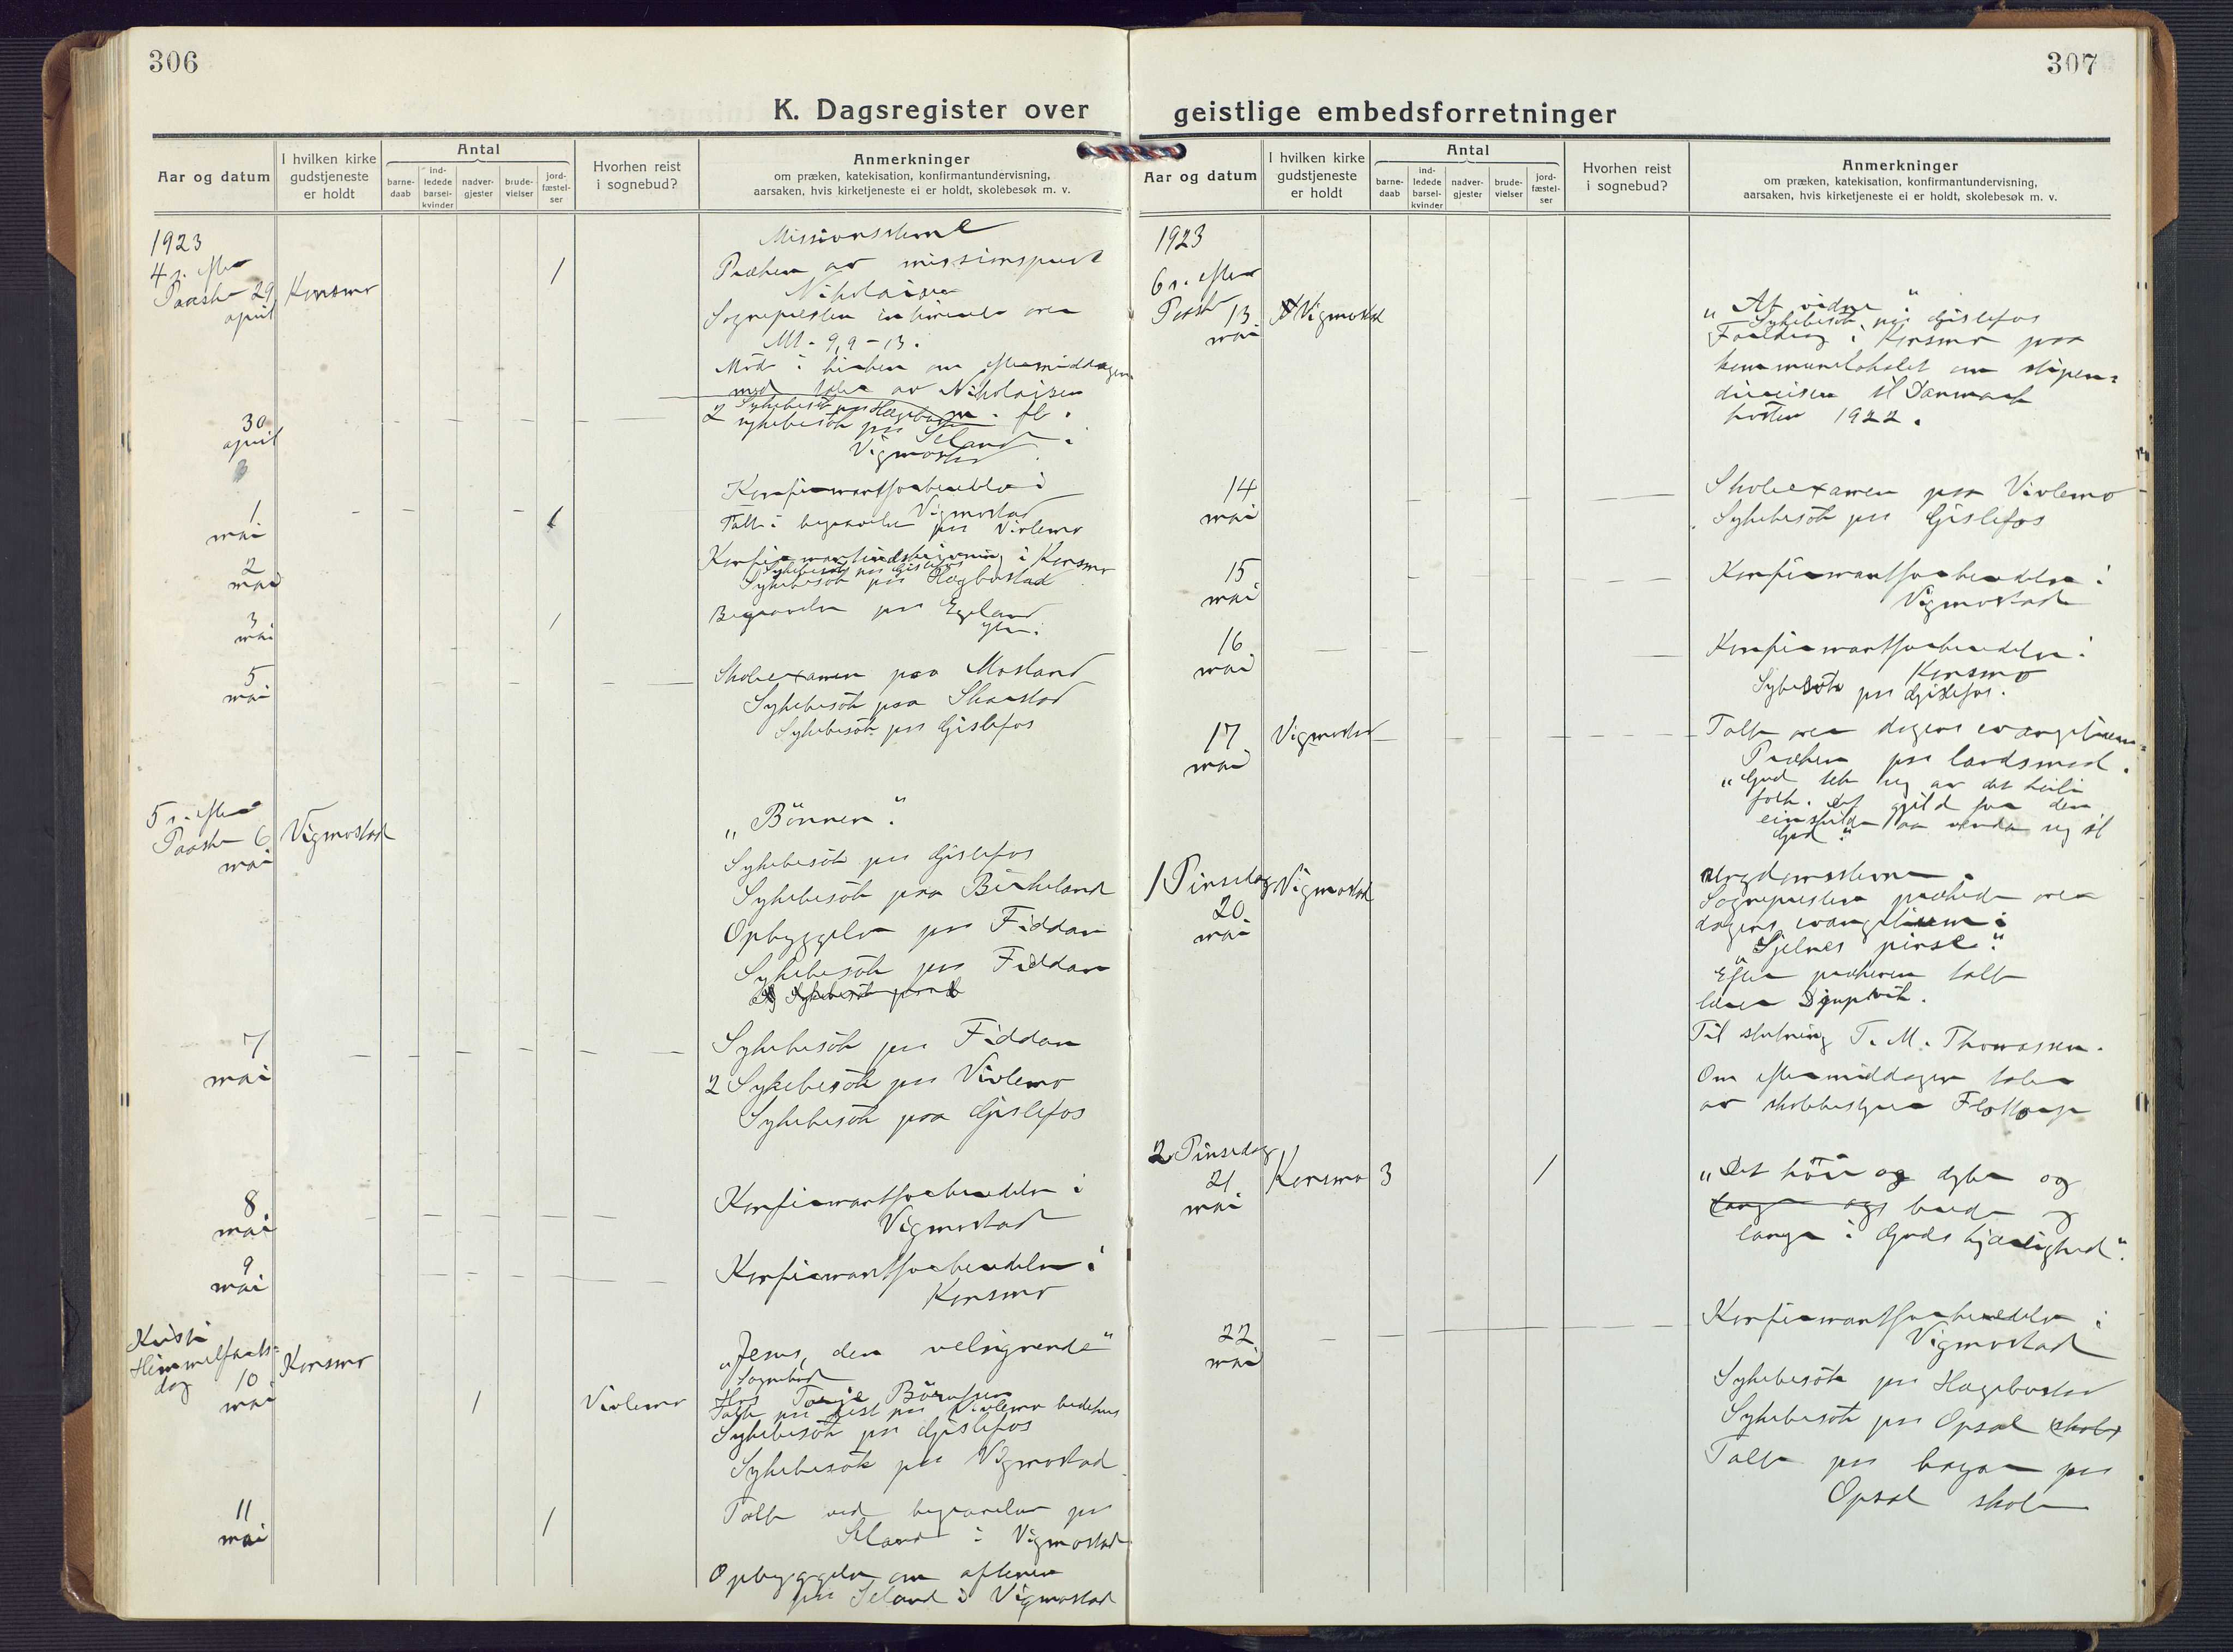 306
K. Dagsregister over
Aar og datum
I hvilken kirke
gudstjeneste
er holdt
Antal
barne-
daab
ind-
ledede
barsel-
kvinder
nadver-
gjester
brude-
vielser
jord-
fæstel-
ser
Hvorhen reist
i sognebud?
Anmerkninger
om præken, katekisation, konfirmantundervisning,
aarsaken, hvis kirketjeneste ei er holdt, skolebesøk m. v.
1923
4 s. efter
Paaske 29
april
Konsmo
1
Missionsstevne
Præken av missionsprest
Nikolaisen
Sognepresten innledet over
Mt. 9, 9-13.
Møde i kirken om eftermiddagen
med tale av Nikolaisen
Sykebesøk paa Hægebostad
m. fl.
30
april
2 sykebesøk paa Seland i
Vigmostad
1
mai
1
Konfirmantforberedelse i
Vigmostad
Talte i begravelse paa Vivlemo
2
mai
Konfirmantindskrivning i Konsmo
Sykebesøk paa Gislefos
Sykebesøk paa Hægbostad
3
mai
1
Begravelse paa Egeland
ytre.
5
mai
Skoleexamen paa Mosland
Sykebesøk paa Skarstad
Sykebesøk paa Gislefos
5 s. efter
Paaske 6
mai
Vigmostad
"Bönnen".
Sykebesök paa Gislefos
Sykebesök paa Birkeland
Opbyggelse paa Fiddan
Sykebesök paa Fiddan
7
mai
Sykebesök paa Fiddan
2 Sykebesök paa Vivlemo
Sykebesök paa Gislefos
8
mai
Konfirmantforberedelse i
Vigmostad
9
mai
Konfirmantforberedelse i
Konsmo
Kristi
Himmelfarts-
dag 10
mai
Konsmo
1
Vivlemo
"Jesus, den velsignende"
Sognebud
Hos Terje Börufsen
Talte paa fest paa Vivlemo bedehus
Sykebesök paa Gislefos
Sykebesök paa Vigmostad
11
mai
1
Talte ved begravelse paa
Seland i Vigmostad
Opbyggelse om aftenen
paa Seland i Vigmostad
307
geistlige embedsforretninger
Aar og datum
I hvilken kirke
gudstjeneste
er holdt
Antal
barne-
daab
ind-
ledede
barsel-
kvinder
nadver-
gjester
brude-
vielser
jord-
fæstel-
ser
Hvorhen reist
i sognebud?
Anmerkninger
om præken, katekisation, konfirmantundervisning,
aarsaken, hvis kirketjeneste ei er holdt, skolebesøk m. v.
1923
6 s. efter
Paaske 13
mai
Vigmostad
"At vidne".
Sykebesök paa Gislefos
Foredrag i Konsmo paa
kommunelokalet om stipen-
diereisen til Danmark
hösten 1922.
14
mai
Skoleexamen paa Vivlemo
Sykebesök paa Gislefos
15
mai
Konfirmantforberedelse i
Vigmostad
16
mai
Konfirmantforberedelse i
Konsmo
Sykebesök paa Gislefos.
17
mai
Vigmostad
Talte over dagens evangelium.
Præken paa landsmaal.
"Gud tek seg av det heile
folk. Det gjeld for den
einskilde aa venda seg til
Gud".
1 Pinsedag
20
mai
Vigmostad
Ungdomsstevne.
Sognepresten prækede over
dagens evangelium:
"Sjelnes pinse".
Efter prækenen talte
lærer Djupvik.
Til slutning T. M. Thomassen.
Om eftermiddagen taler
av skolebestyrer Flottorp
2 Pinsedag
21
mai
Konsmo
3
1
"Det höie og dype og
lange og brede og
lange i Guds kjærlighed".
22
mai
Konfirmantforberedelse i
Vigmostad
Sykebesök paa Hægebostad
Sykebesök paa Opsal skole
Talte paa basar paa
Opsal skole